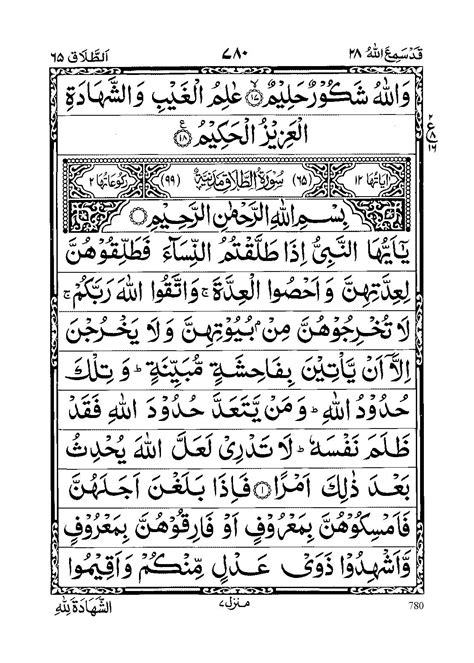 قَدْسَمِعَ اللهُ ۲۸ ۷۸۰ اَلطَّلَاق ۶۵
وَاللّٰهُ شَكُوْرٌ حَلِيْمٌ ۙ۝۱۷ عٰلِمُ الْغَيْبِ وَالشَّهَادَةِ
الْعَزِيْزُ الْحَكِيْمُ ۝۱۸
ع ۲ ۸ ۱۶
اٰيَاتُهَا ۱۲ (۶۵) سُوْرَةُ الطَّلَاقِ مَدَنِيَّةٌ (۹۹) رُكُوْعَاتُهَا ۲
بِسْمِ اللّٰهِ الرَّحْمٰنِ الرَّحِيْمِ ۝
يٰۤاَيُّهَا النَّبِيُّ اِذَا طَلَّقْتُمُ النِّسَآءَ فَطَلِّقُوْهُنَّ
لِعِدَّتِهِنَّ وَاَحْصُوا الْعِدَّةَ ۚ وَاتَّقُوا اللّٰهَ رَبَّكُمْ ۚ
لَا تُخْرِجُوْهُنَّ مِنْۢ بُيُوْتِهِنَّ وَلَا يَخْرُجْنَ
اِلَّاۤ اَنْ يَّاْتِيْنَ بِفَاحِشَةٍ مُّبَيِّنَةٍ ؕ وَتِلْكَ
حُدُوْدُ اللّٰهِ ؕ وَمَنْ يَّتَعَدَّ حُدُوْدَ اللّٰهِ فَقَدْ
ظَلَمَ نَفْسَهٗ ؕ لَا تَدْرِىْ لَعَلَّ اللّٰهَ يُحْدِثُ
بَعْدَ ذٰلِكَ اَمْرًا ۝۱ فَاِذَا بَلَغْنَ اَجَلَهُنَّ
فَاَمْسِكُوْهُنَّ بِمَعْرُوْفٍ اَوْ فَارِقُوْهُنَّ بِمَعْرُوْفٍ
وَّاَشْهِدُوْا ذَوَىْ عَدْلٍ مِّنْكُمْ وَاَقِيْمُوا
الشَّهَادَةَ لِلّٰهِ منزل ۷ 780